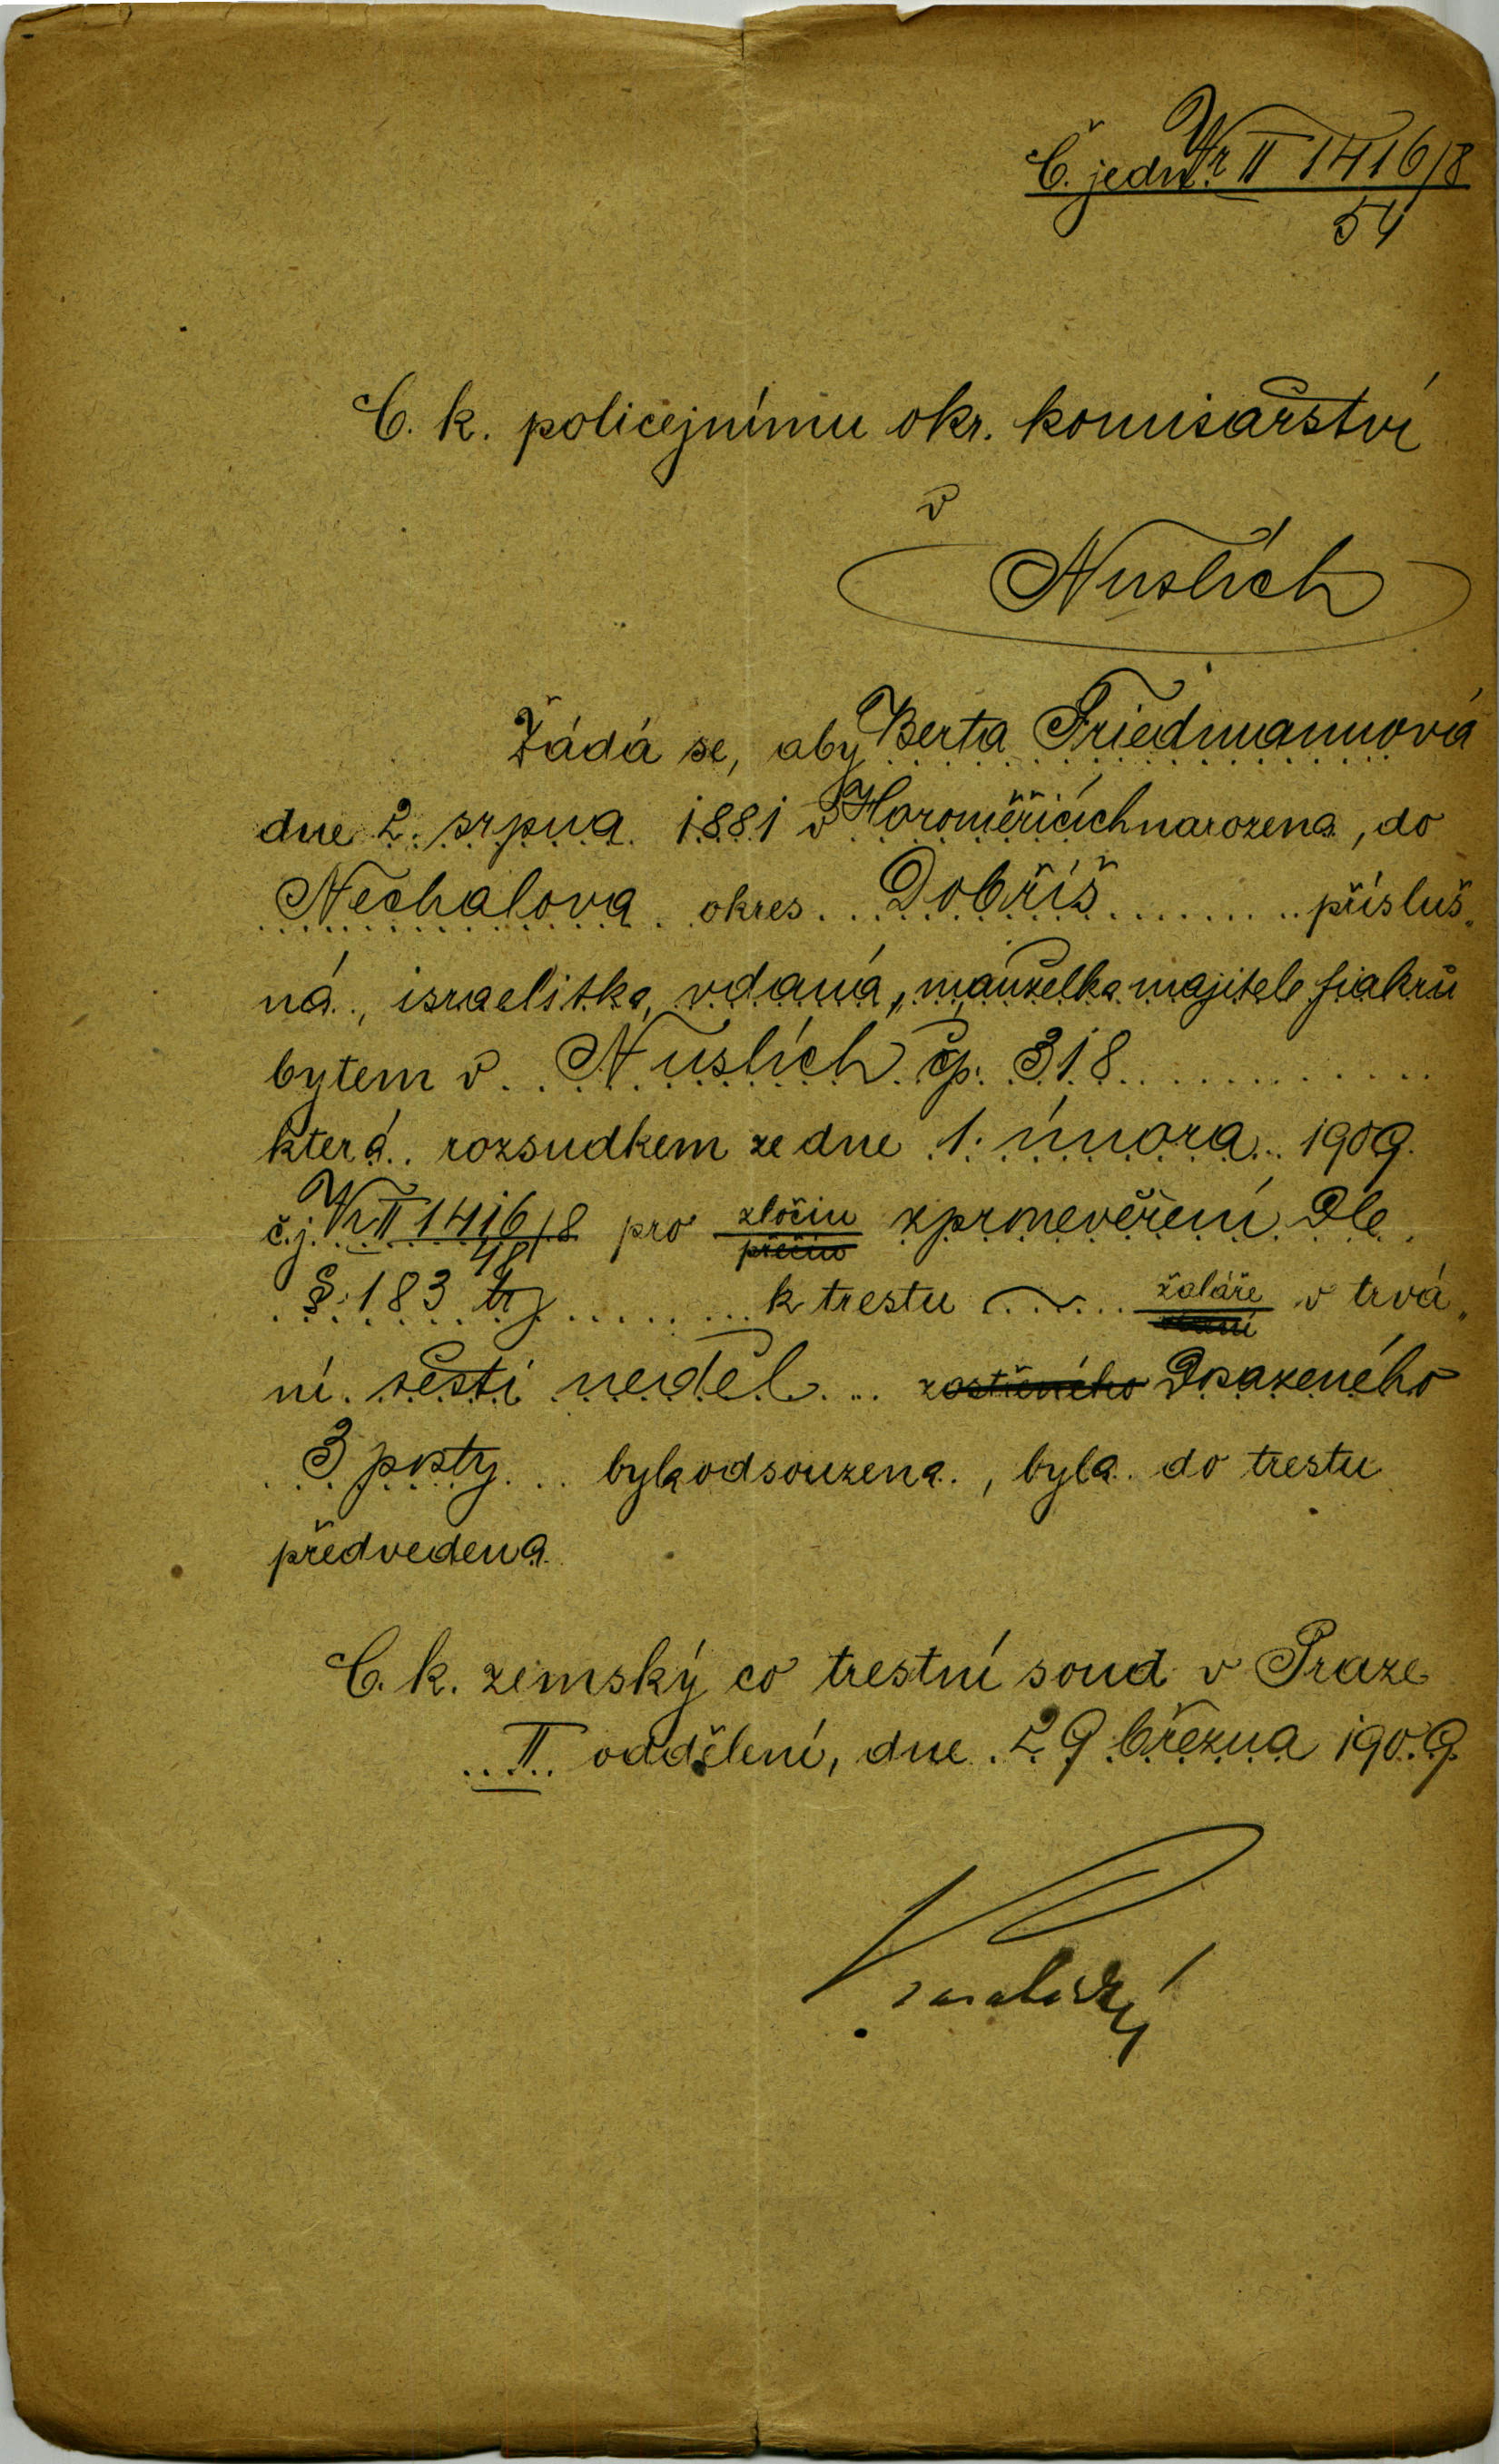 Č. jedn. Vr II 1416/8
54
C. k. policejnímu okr. komisařství
v
Nuslích
Žádá se, aby Berta Friedmannová
dne 2. srpna 1881 v Horoměřicích narozena, do
Nechalova okres Dobříš přísluš„
ná, israelitka, vdaná, manželka majitele fiakrů
bytem v Nuslích čp. 318
která rozsudkem ze dne 1. února 1909.
č.j. Vr II 1416/8 pro zločin zpronevěření dle
48 přečin
§ 183 trz k trestu žaláře v trvá„
vězení
ní šesti neděl zostřeného Dosazeného
3 posty byla odsouzena, byla do trestu
předvedena
C. k. zemský co trestní soud v Praze
II oddělení, dne 29 března 1909.